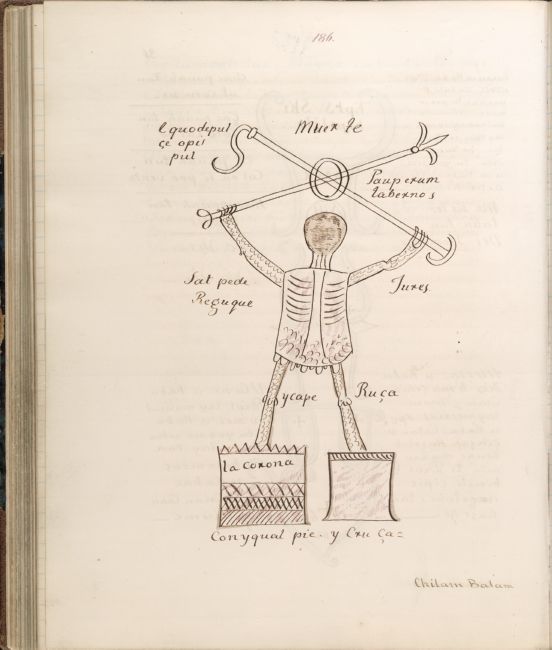 184.
Muerte
Equodepul
çe opi
pul
Pauperum
tabernos
Sat pede
Reguque
Tures
ycape
Ruça
la corona
Conyqual pie. y Cru ça=
Chilam Balam